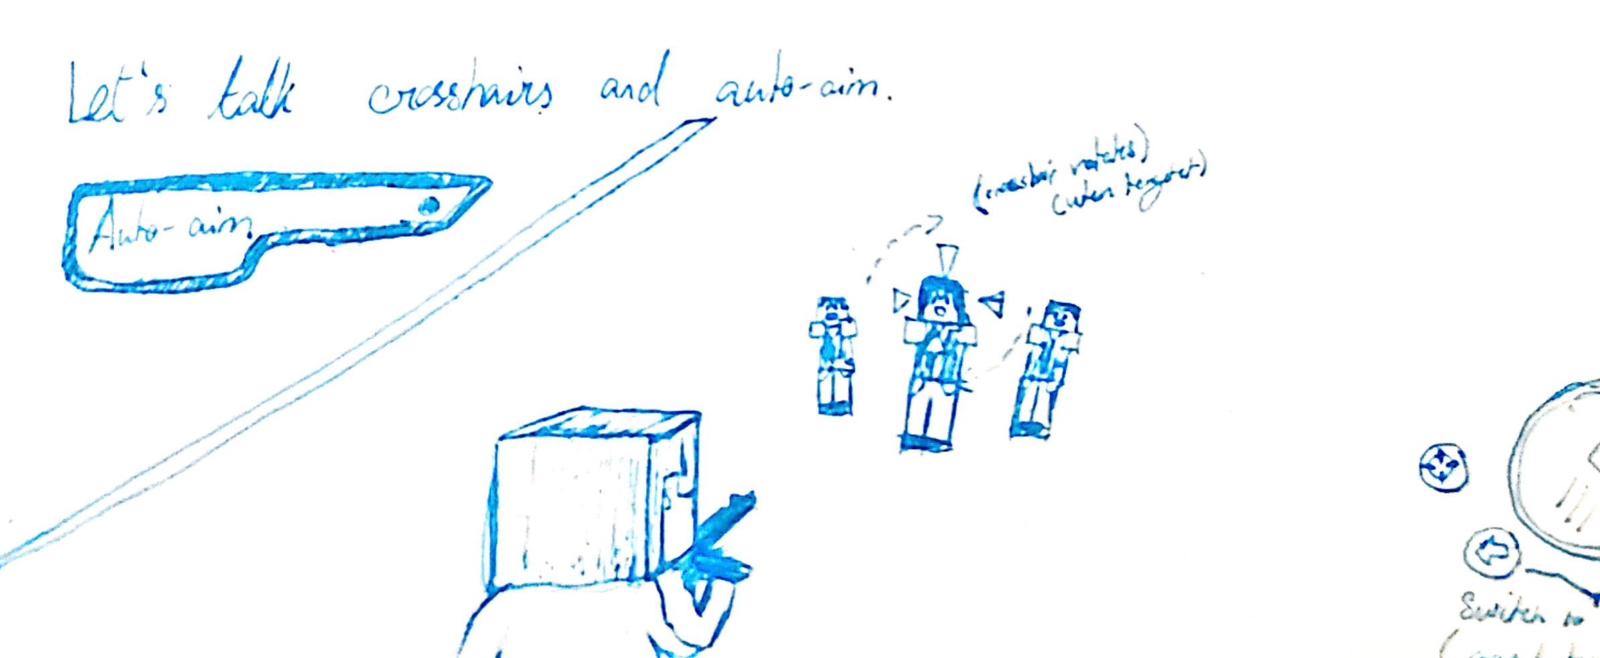 Let's talk crosshairs and auto-aim.
Auto-aim
(crosshair rotates)
(when targeted)
Switch to